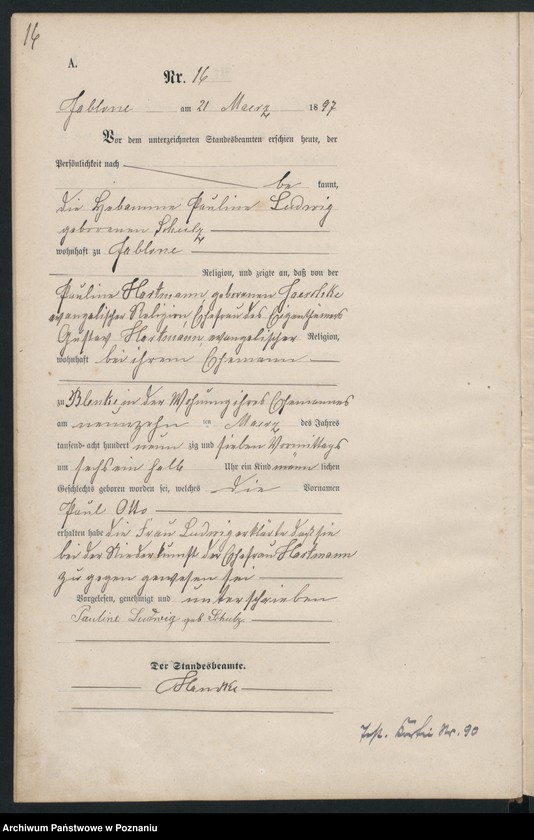 16
A.
Nr. 16
Jablone am 21 Maerz 1897
Vor dem unterzeichneten Standesbeamten erschien heute, der
Persönlichkeit nach
be kannt,
die Hebamme Pauline Ludwig
geborenen Schulz
wohnhaft zu Jablone
Religion, und zeigte an, daß von der
Pauline Hartmann, geborenen
evangelischer Religion, Ehefrau des Eigenthümers
Gustav Hartmann, evangelischer Religion,
wohnhaft bei ihrem Ehemann
zu Blenke in der Wohnung ihres Ehemannes
am neunzehn ten Maerz des Jahres
tausend acht hundert neun zig und sieben Vormittags
um sechs ein halb Uhr ein Kind männ lichen
Geschlechts geboren worden sei, welches die Vornamen
Paul Otto
erhalten habe die Frau Ludwig erklärte daß sie
bei der Niederkunft der Ehefrau Hartmann
zu gegen gewesen sei
Vorgelesen, genehmigt und unterschrieben
Pauline Ludwig geb Schulz
Der Standesbeamte.
Nr. 90
Archiwum Państwowe w Poznaniu